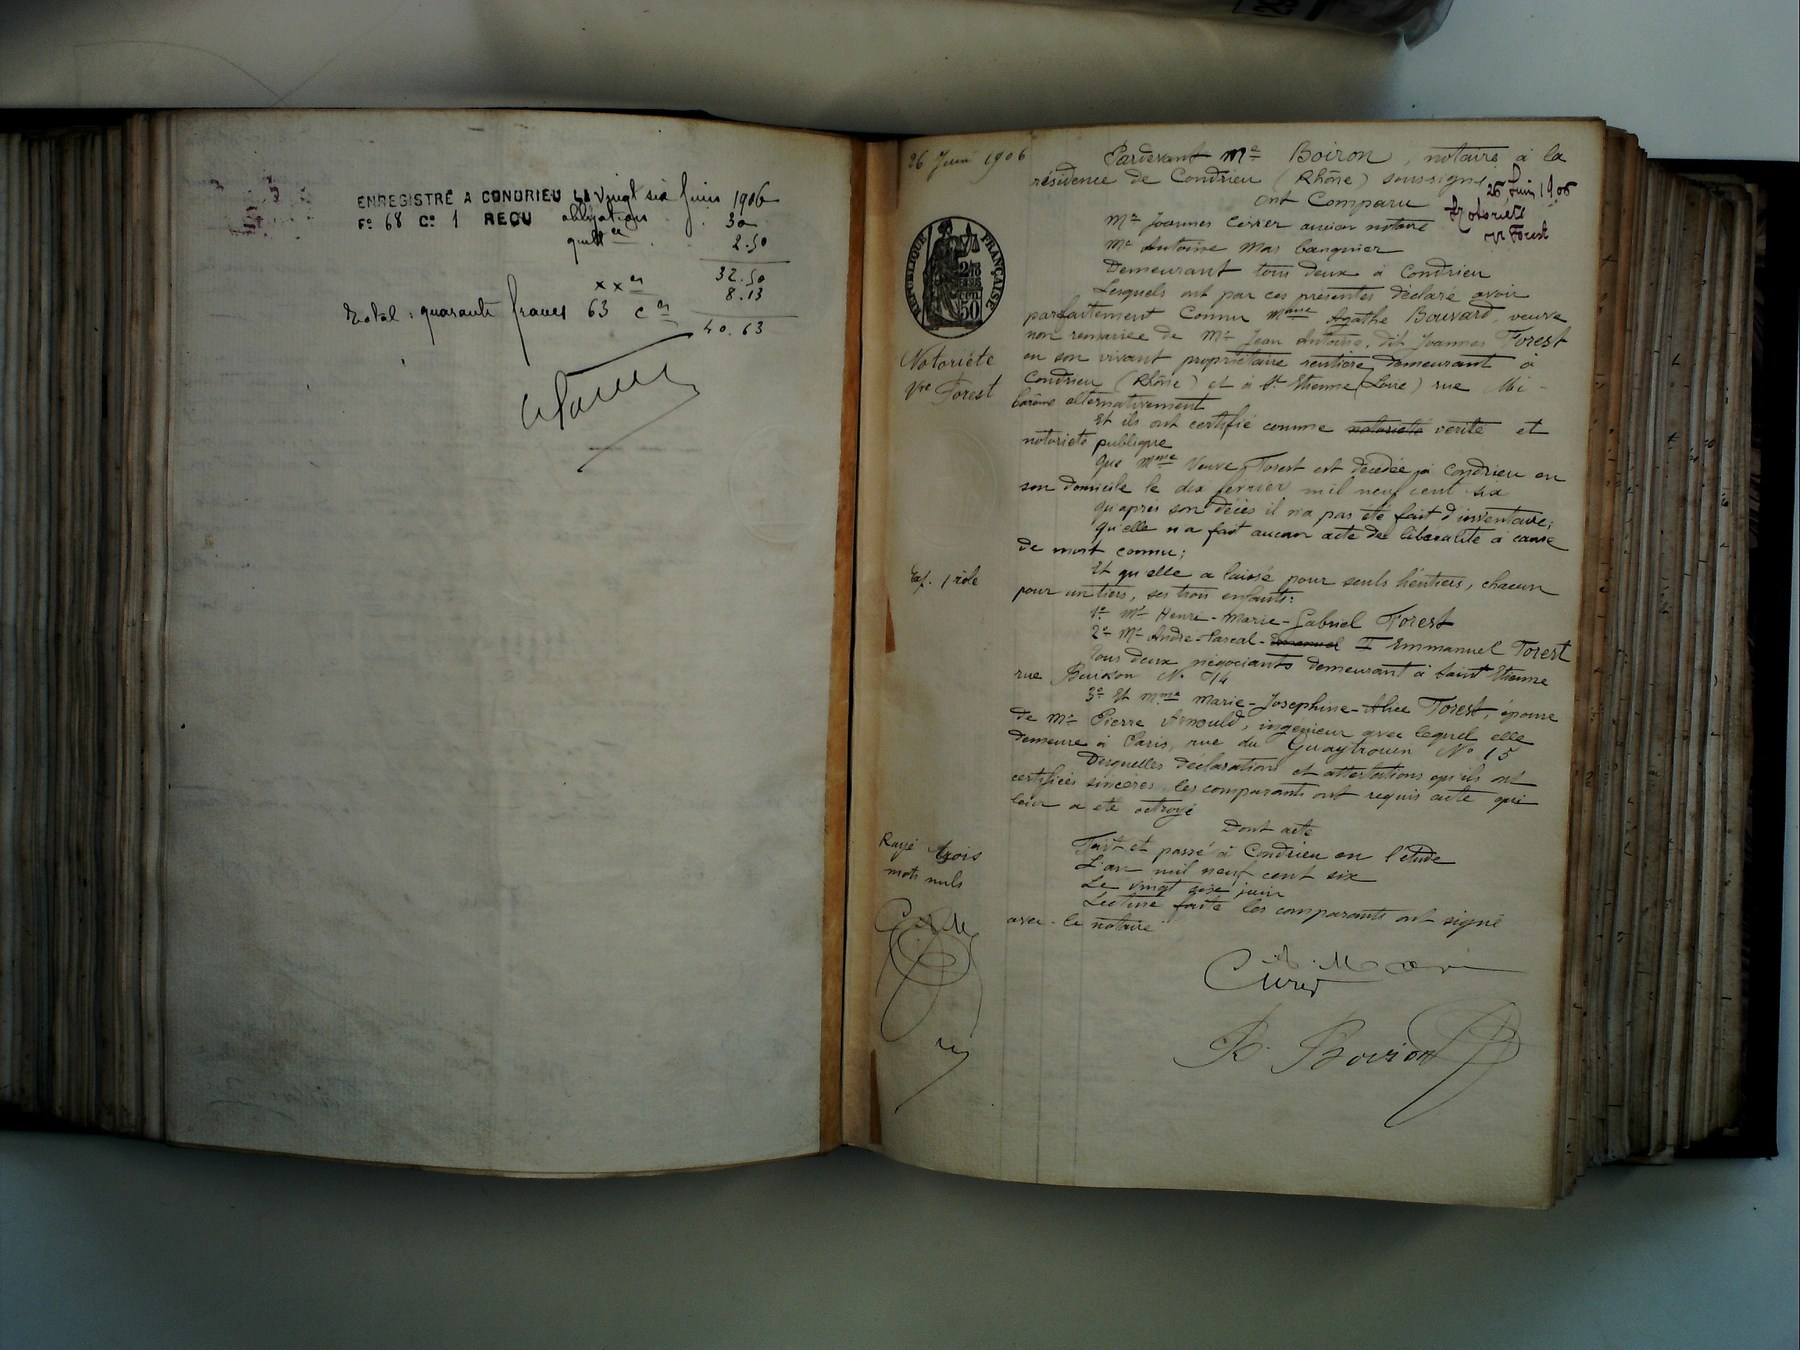 ENREGISTRÉ A CONDRIEU LE vingt six Juin 1906
F° 68 C° 1 REÇU obligations 30
quitt ce 2.50
32.50
xx es 8.13
Total : quarante francs 63 c es 40.63
26 Juin 1906
Pardevant Me Boiron, notaire à la
résidence de Condrieu (Rhône) soussigné
26 Juin 1906
Notoriété
Vve Forest
ont Comparu
Mr Joannes Civier ancien notaire
Mr Antoine Mas banquier
Demeurant tous deux à Condrieu
Lesquels ont par ces présentes déclaré avoir
parfaitement connu Mme Agathe Bouvard, veuve
non remariée de Mr Jean Antoine, dit Joannes Forest
en son vivant propriétaire rentière demeurant à
Condrieu (Rhône) et à St Etienne (Loire) rue Mi-
carême alternativement
Et ils ont certifié comme notoriété vérité et
notoriété publique
Que Mme Veuve Forest est décédée à Condrieu en
son domicile le dix février mil neuf cent six
Qu'après son décès il n'a pas été fait d'inventaire;
Qu'elle n'a fait aucun acte de libéralité à cause
de mort connu;
Et qu'elle a laissé pour seuls héritiers, chacun
pour un tiers, ses trois enfants:
1° Mr Henri-Marie-Gabriel Forest
2° Mr André-Pascal-Emmanuel Emmanuel Forest
Tous deux négociants demeurant à Saint Etienne
rue N° 14
3° Et Mme Marie-Joséphine-Alice Forest, épouse
de Mr Pierre Arnould, ingénieur avec lequel elle
demeure à Paris, rue du Guaytrouin N° 15
Desquelles déclarations et attestations qu'ils ont
certifiées sincères, les comparants ont requis acte qui
leur a été octroyé
Dont acte
Fait et passé à Condrieu en l'étude
L'an mil neuf cent six
Le vingt six juin
Lecture faite les comparants ont signé
avec le notaire
REPUBLIQUE FRANÇAISE
2/10
50
Notoriété
Vve Forest
Exp. 1 rôle
Rayé trois
mots nuls
A. Mas
Civier
R. Boiron